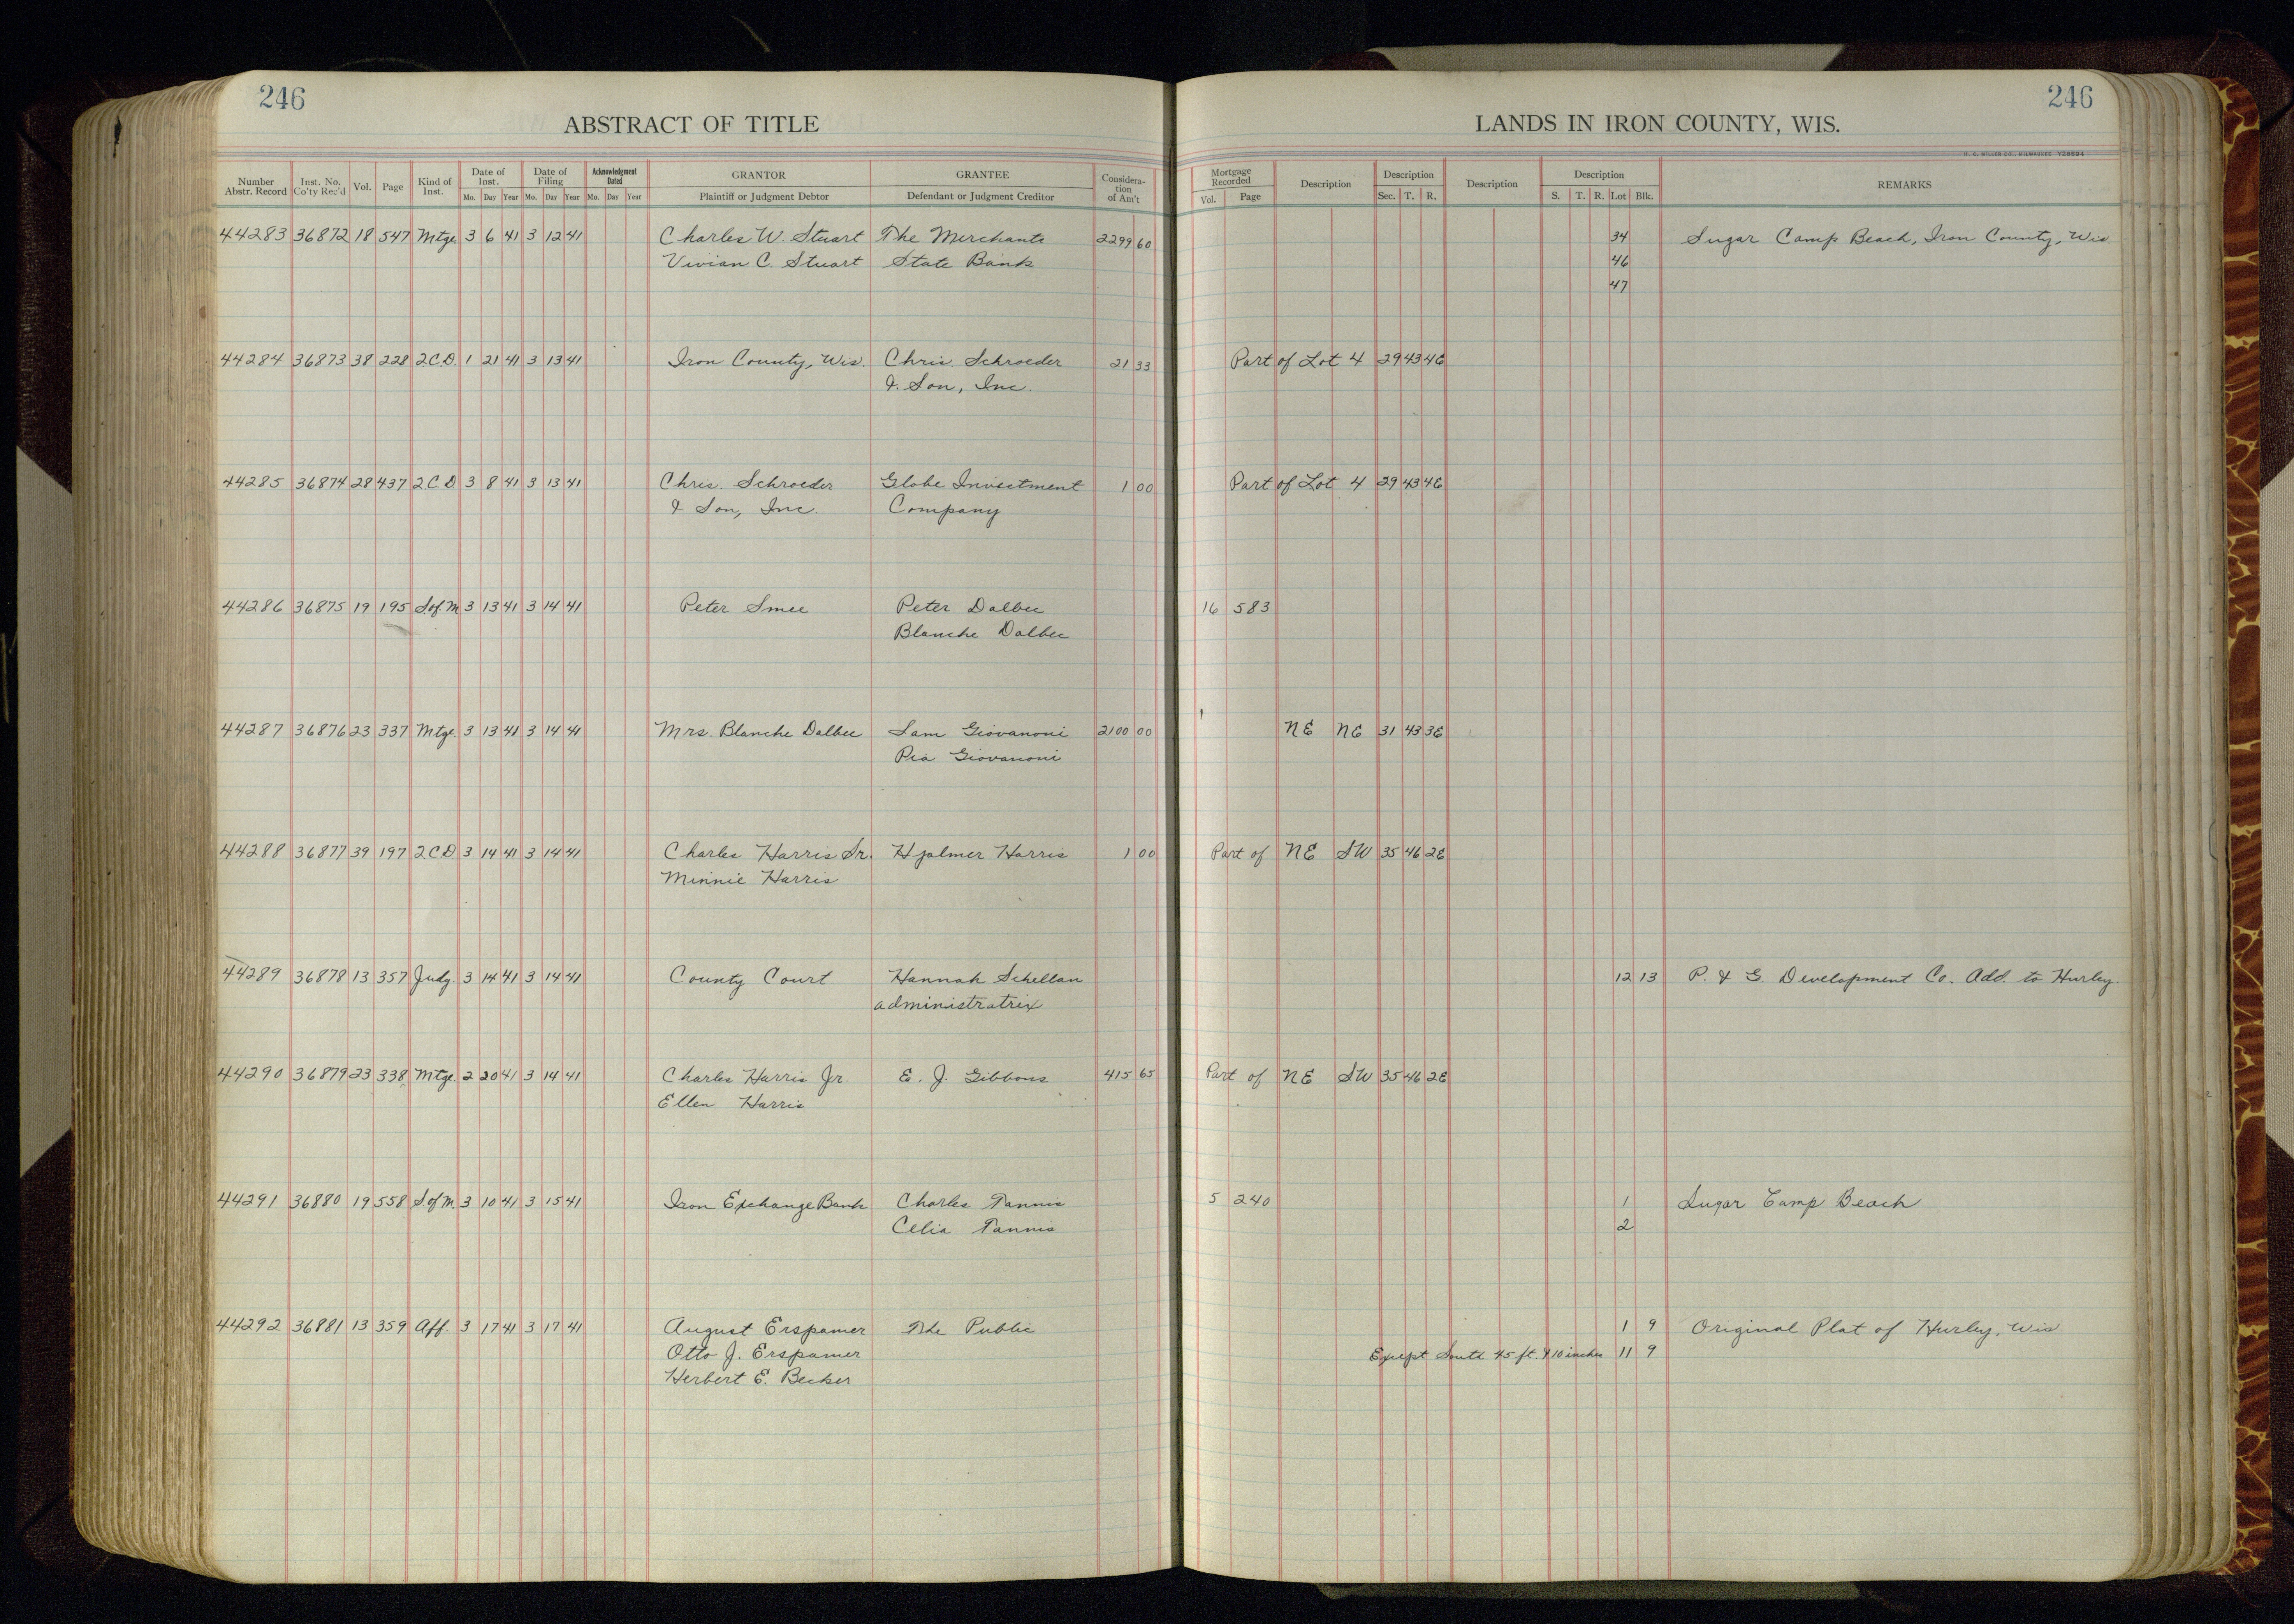 246
246
ABSTRACT OF TITLE
LANDS IN IRON COUNTY, WIS.
H. C. MILLER CO., MILWAUKEE Y28594
Number Abstr. Record | Inst. No. Co'ty Rec'd | Vol. | Page | Kind of Inst. | Date of Inst. Mo. Day Year | Date of Filing Mo. Day Year | Acknowledgment Dated Mo. Day Year | GRANTOR Plaintiff or Judgment Debtor | GRANTEE Defendant or Judgment Creditor | Considera-tion of Am't | Mortgage Recorded Vol. Page | Description | Description Sec. T. R. | Description | Description S. T. R. Lot Blk. | REMARKS
44283 36872 18 547 Mtge. 3 6 41 3 12 41 Charles W. Stuart The Merchants 2299 60 34 Sugar Camp Beach, Iron County, Wis.
Vivian C. Stuart State Bank 46
47
44284 36873 38 228 2.C.D. 1 21 41 3 13 41 Iron County, Wis. Chris. Schroeder 21 33 Part of Lot 4 29 43 4E
& Son, Inc.
44285 36874 28 437 2.C.D 3 8 41 3 13 41 Chris. Schroeder Globe Investment 1 00 Part of Lot 4 29 43 4E
& Son, Inc. Company
44286 36875 19 195 S.of.M 3 13 41 3 14 41 Peter Smee Peter Dalbec 16 583
Blanche Dalbec
44287 36876 23 337 Mtge. 3 13 41 3 14 41 Mrs. Blanche Dalbec Sam Giovanoni 2100 00 NE NE 31 43 3E
Pia Giovanoni
44288 36877 39 197 2CD 3 14 41 3 14 41 Charles Harris Sr. Hjalmer Harris 1 00 Part of NE SW 35 46 2E
Minnie Harris
44289 36878 13 357 Judg. 3 14 41 3 14 41 County Court Hannah Schellan 12 13 P. & G. Development Co. Add. to Hurley
administratrix
44290 36879 23 338 Mtge. 2 20 41 3 14 41 Charles Harris Jr. E. J. Gibbons 415 65 Part of NE SW 35 46 2E
Ellen Harris
44291 36880 19 558 S of M. 3 10 41 3 15 41 Iron Exchange Bank Charles Tannis 5 240 1 Sugar Camp Beach
Celia Tannis 2
44292 36881 13 359 Aff. 3 17 41 3 17 41 August Erspamer The Public 1 9 Original Plat of Hurley, Wis.
Otto J. Erspamer Except South 45 ft. & 10 inches 11 9
Herbert E. Becker